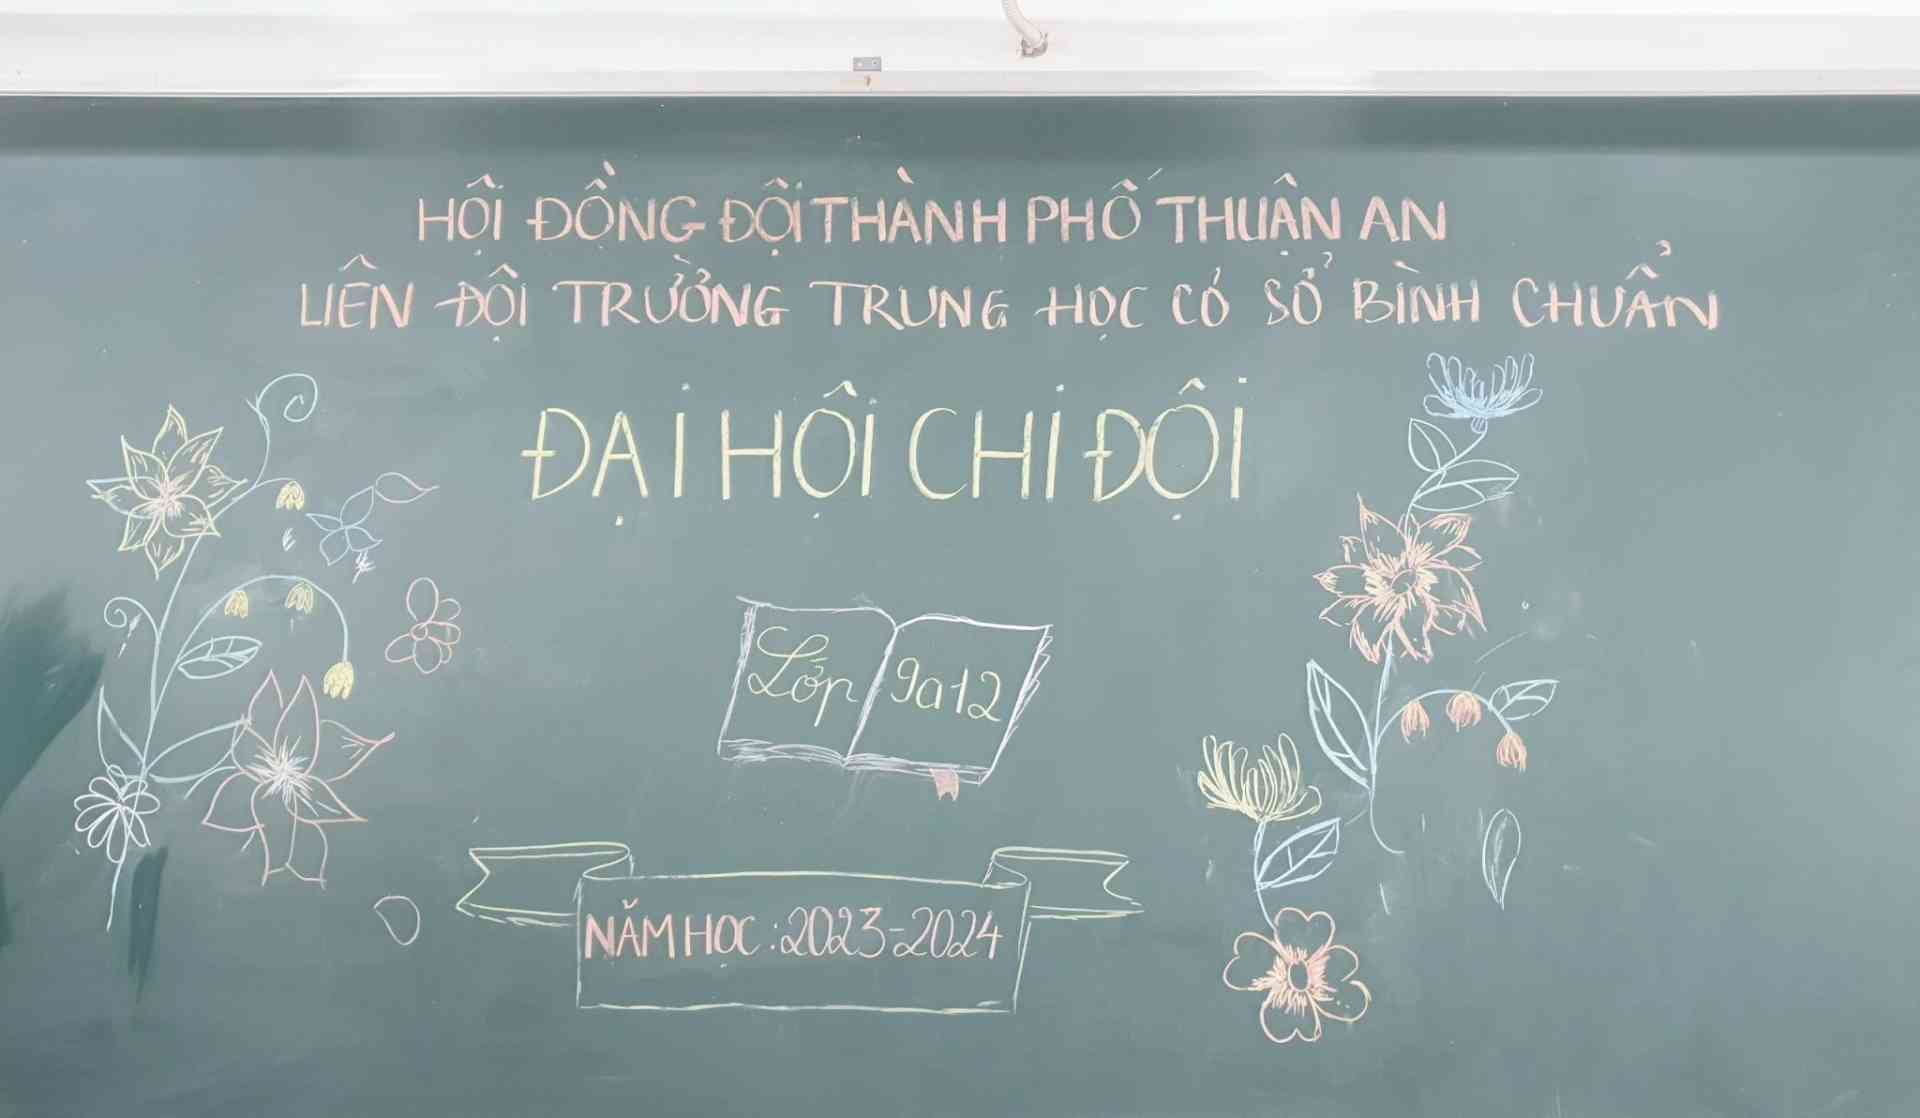 HỘI ĐỒNG ĐỘI THÀNH PHỐ THUẬN AN
LIÊN ĐỘI TRƯỜNG TRUNG HỌC CƠ SỞ BÌNH CHUẨN
ĐẠI HỘI CHI ĐỘI
Lớp 9a12
NĂM HỌC : 2023-2024